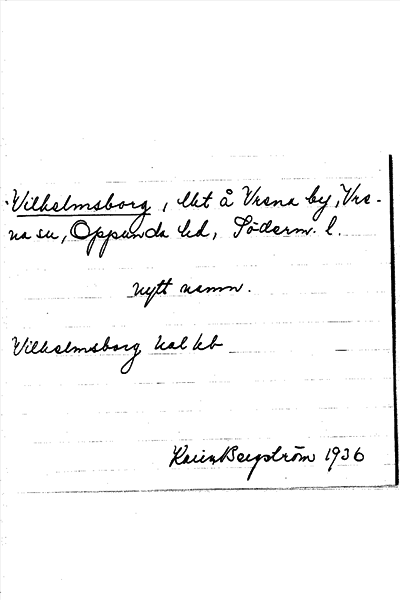 Vilhelmsborg, lht å Vrena by, Vre-
na sn, Oppunda hd, Söderm. l.
nytt namn.
Vilhelmsborg hal kb
Karin Bergström 1936